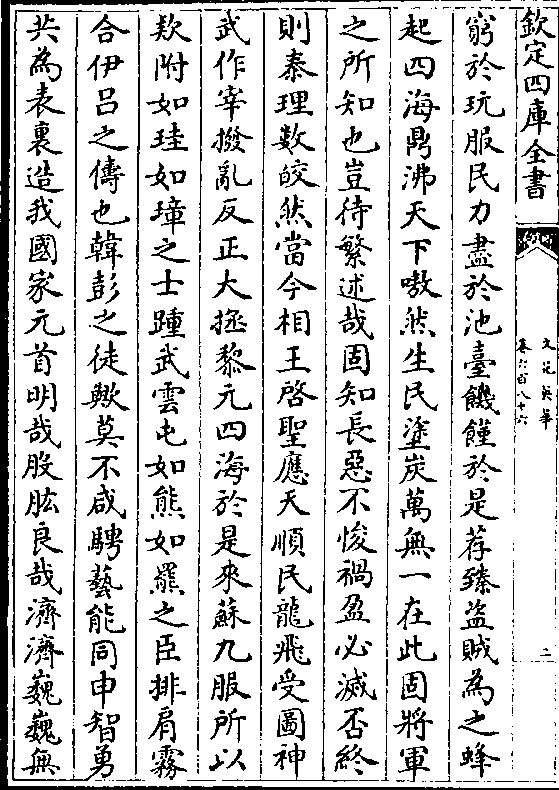 欽定四庫全書
文苑英華
卷六百八十六
二
窮於玩服民力盡於池臺饑饉於是荐臻盜賊為之蜂
起四海鼎沸天下嗷然生民塗炭萬無一在此固將軍
之所知也豈待繁述哉固知長惡不悛禍盈必滅否終
則泰理數皎然當今相王啓聖應天順民龍飛受圖神
武作宰撥亂反正大拯黎元四海於是來蘇九服所以
欵附如珪如璋之士踵武雲屯如熊如羆之臣排肩霧
合伊呂之儔也韓彭之徒歟莫不咸騁藝能同申智勇
共為表裏造我國家元首明哉股肱良哉濟濟巍巍無